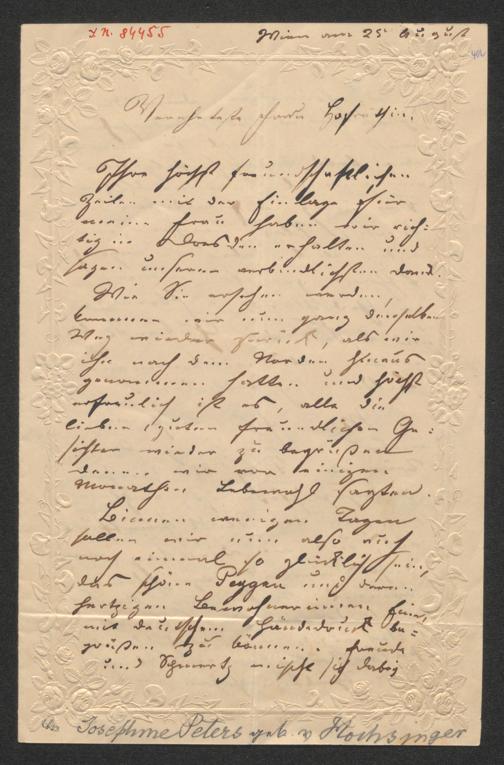 I.N. 84455
Wien am 25 August
Verehrteste Frau Hofräthin.
Ihre höchst freundschaftlichen
Zeilen mit der Einlage für
meine Frau haben wir rich-
tig in Dresden erhalten und
sagen unseren verbindlichsten Dank.
Wie Sie ersehen werden,
kommen wir nun ganz denselben
Weg wieder zurück, als wir
ihn nach dem Norden hinaus
genommen hatten und höchst
erfreulich ist es, alle die
lieben guten freundlichen Ge-
sichter wieder zu begrüßen
denen wir vor einigen
Monathen Lebewohl sagten.
Binnen wenigen Tagen
sollen wir nun also auch
noch einmal so glücklich sein,
das schöne Peggau und deren
herzigen Bewohnerinnen
mit deutschem Händedruck be-
grüßen zu können. Freude
und Schmertz mischt sich dabei
Josephine Peters geb. v Hochsinger